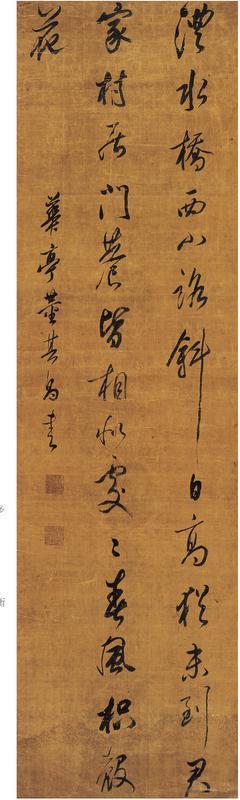 澧水橋西小路斜日高猶未到君
家村居門巷皆相似處〻春風枳殼
花
華亭董其昌書